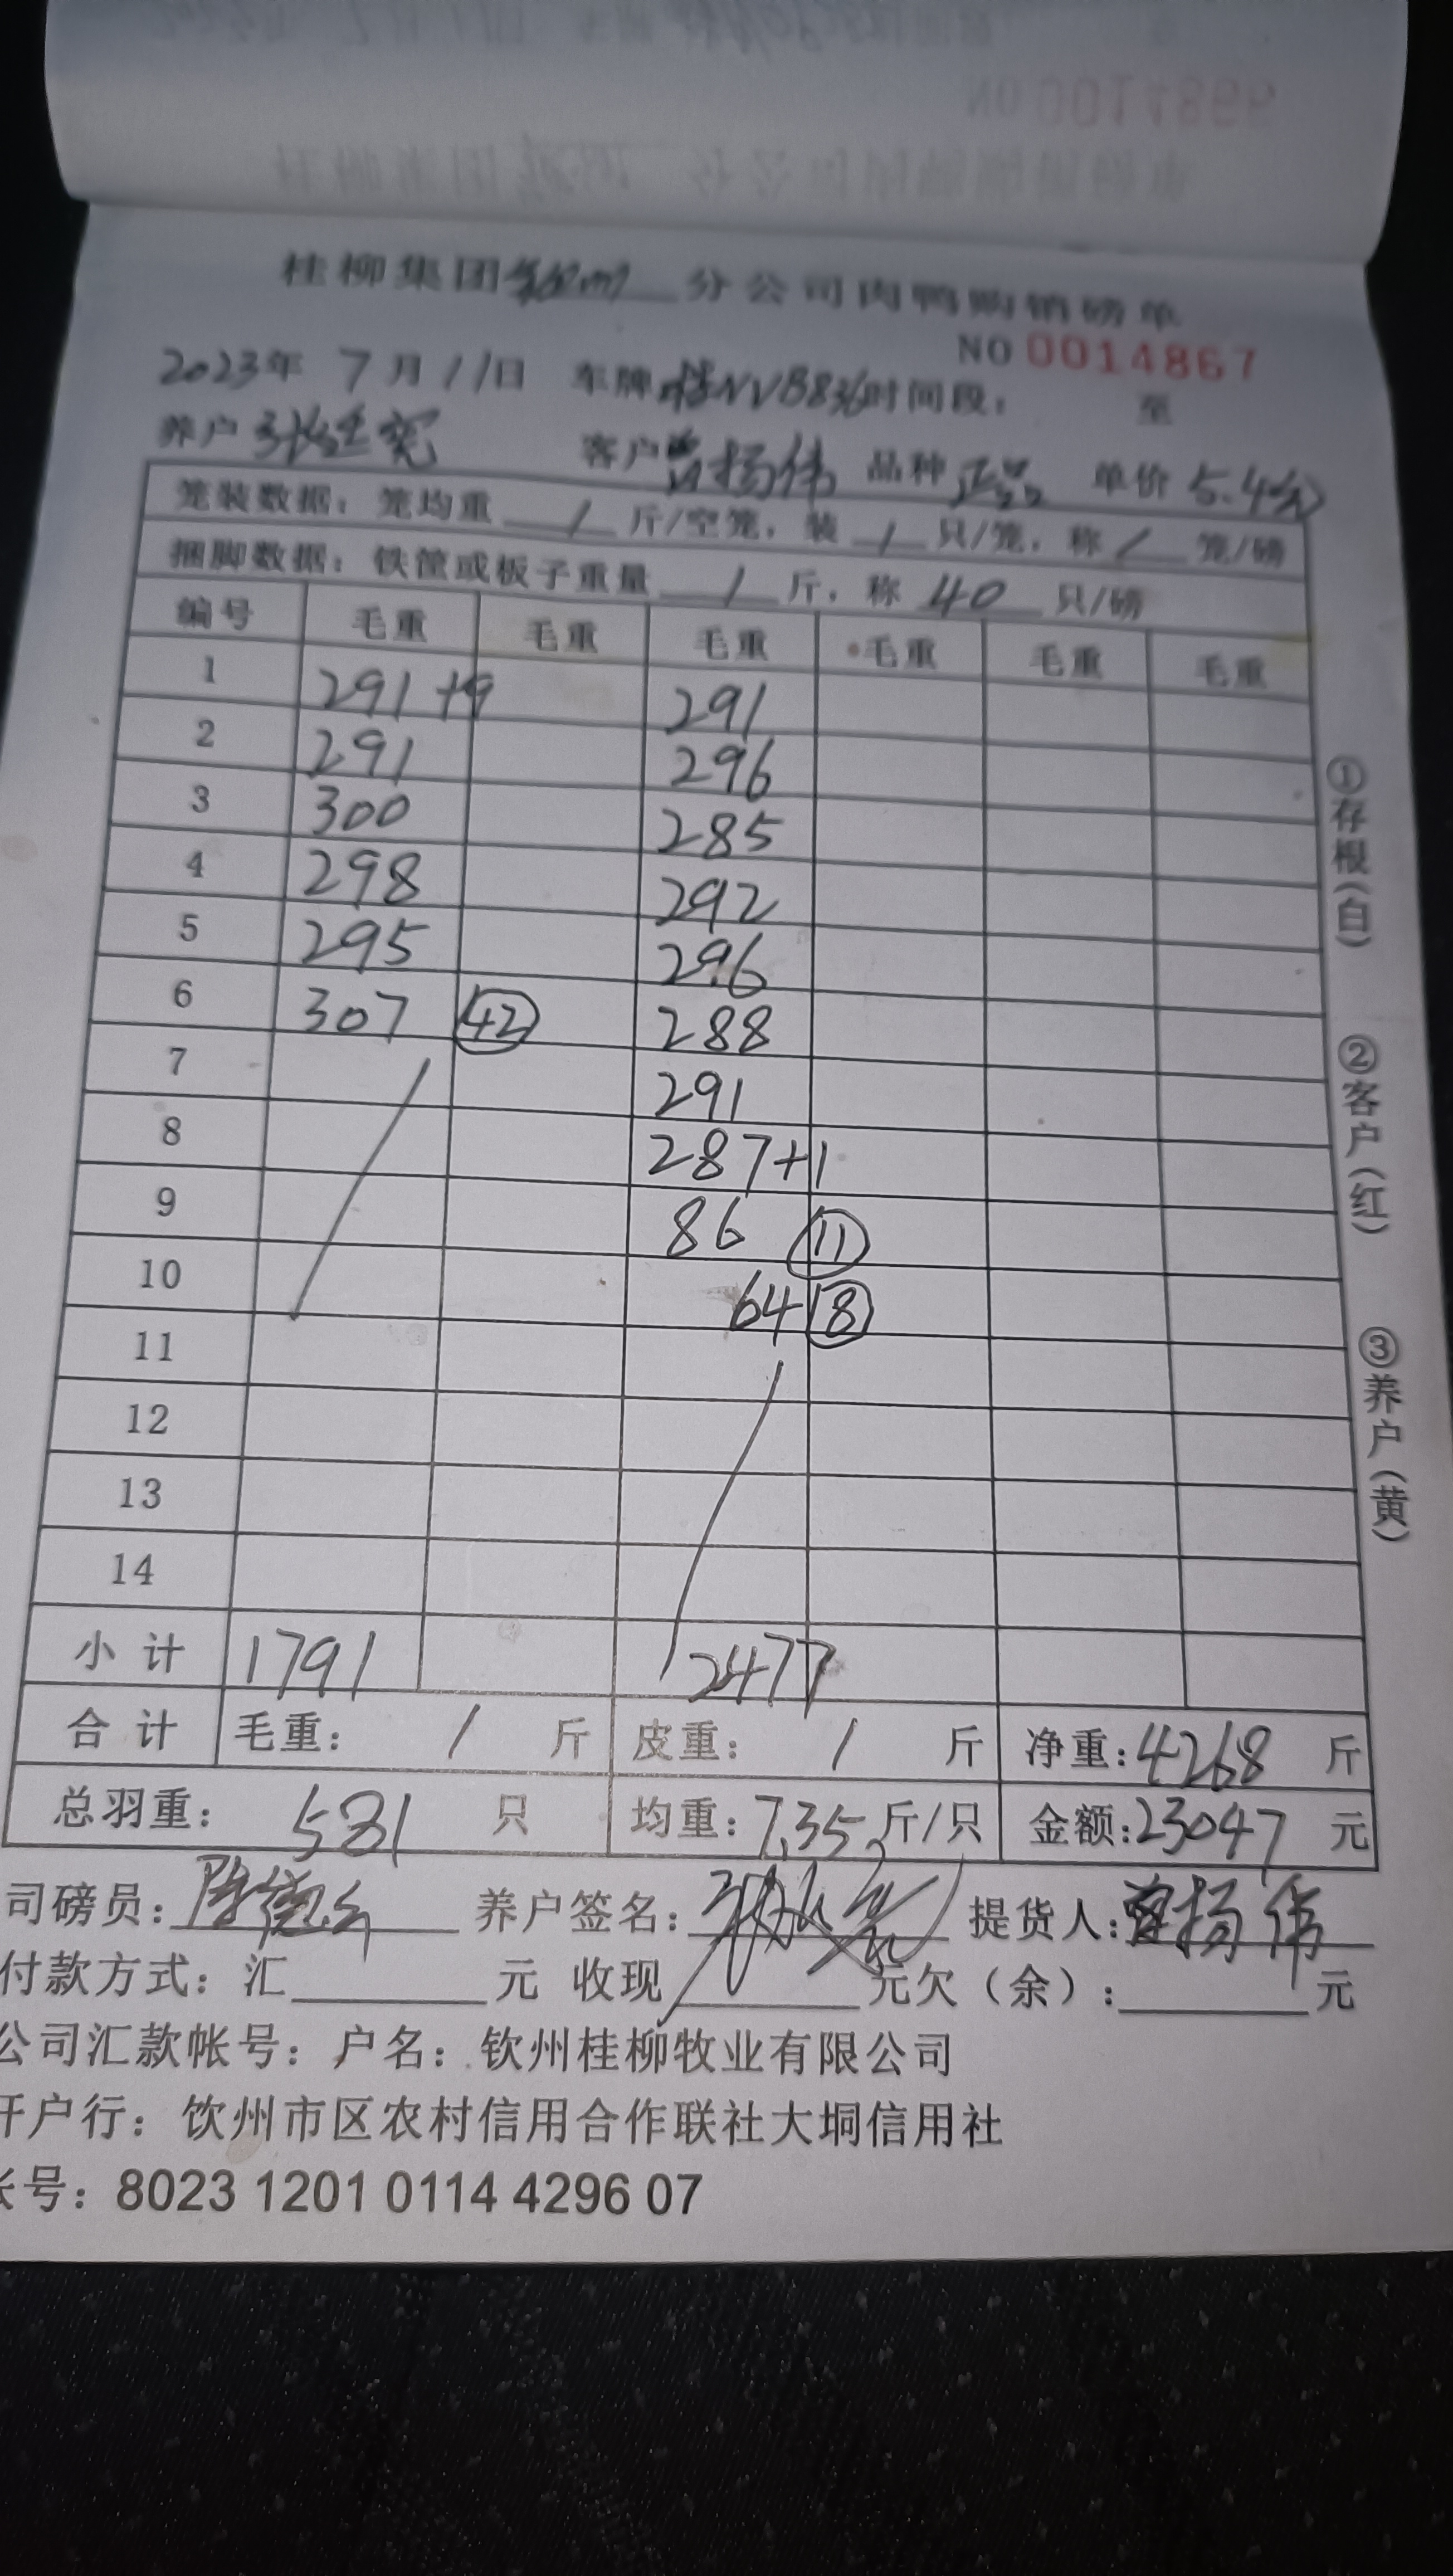 桂柳集团钦州分公司肉鸭购销磅单
NO 0014867
2023年 7月11日 车牌桂NVB836时间段： 至
养户 张 客户 曾扬伟 品种 正品 单价 5.4元
笼装数据：笼均重 / 斤/空笼，装 / 只/笼，称 / 笼/磅
捆脚数据：铁筐或板子重量 / 斤，称 40 只/磅
编号 毛重 毛重 毛重 毛重 毛重 毛重
1 291+9 291
2 291 296
3 300 285
4 298 292
5 295 296
6 307 42 288
7 291
8 287+1
9 86 11
10 64 8
11
12
13
14
小计 1791 2477
合计 毛重： / 斤 皮重： / 斤 净重：4268 斤
总羽重： 581 只 均重：7.35斤/只 金额：23047 元
司磅员： 养户签名： 提货人：曾扬伟
付款方式：汇 元 收现 元欠（余）： 元
公司汇款帐号：户名：钦州桂柳牧业有限公司
开户行：饮州市区农村信用合作联社大垌信用社
帐号：8023 1201 0114 4296 07
①存根（白）
②客户（红）
③养户（黄）